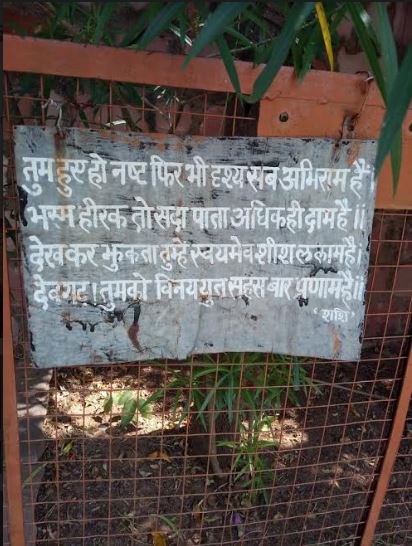 तुम हुए हो नष्ट फिर भी दृश्य सब अभिराम हैं
भस्म हीरक तो सदा पाता अधिक ही दाम है ॥
देखकर झुकता तुम्हें स्वयमेव शीश ललाम है।
देवगढ़। तुमको विनययुत सहस बार प्रणाम है॥
'शशि'